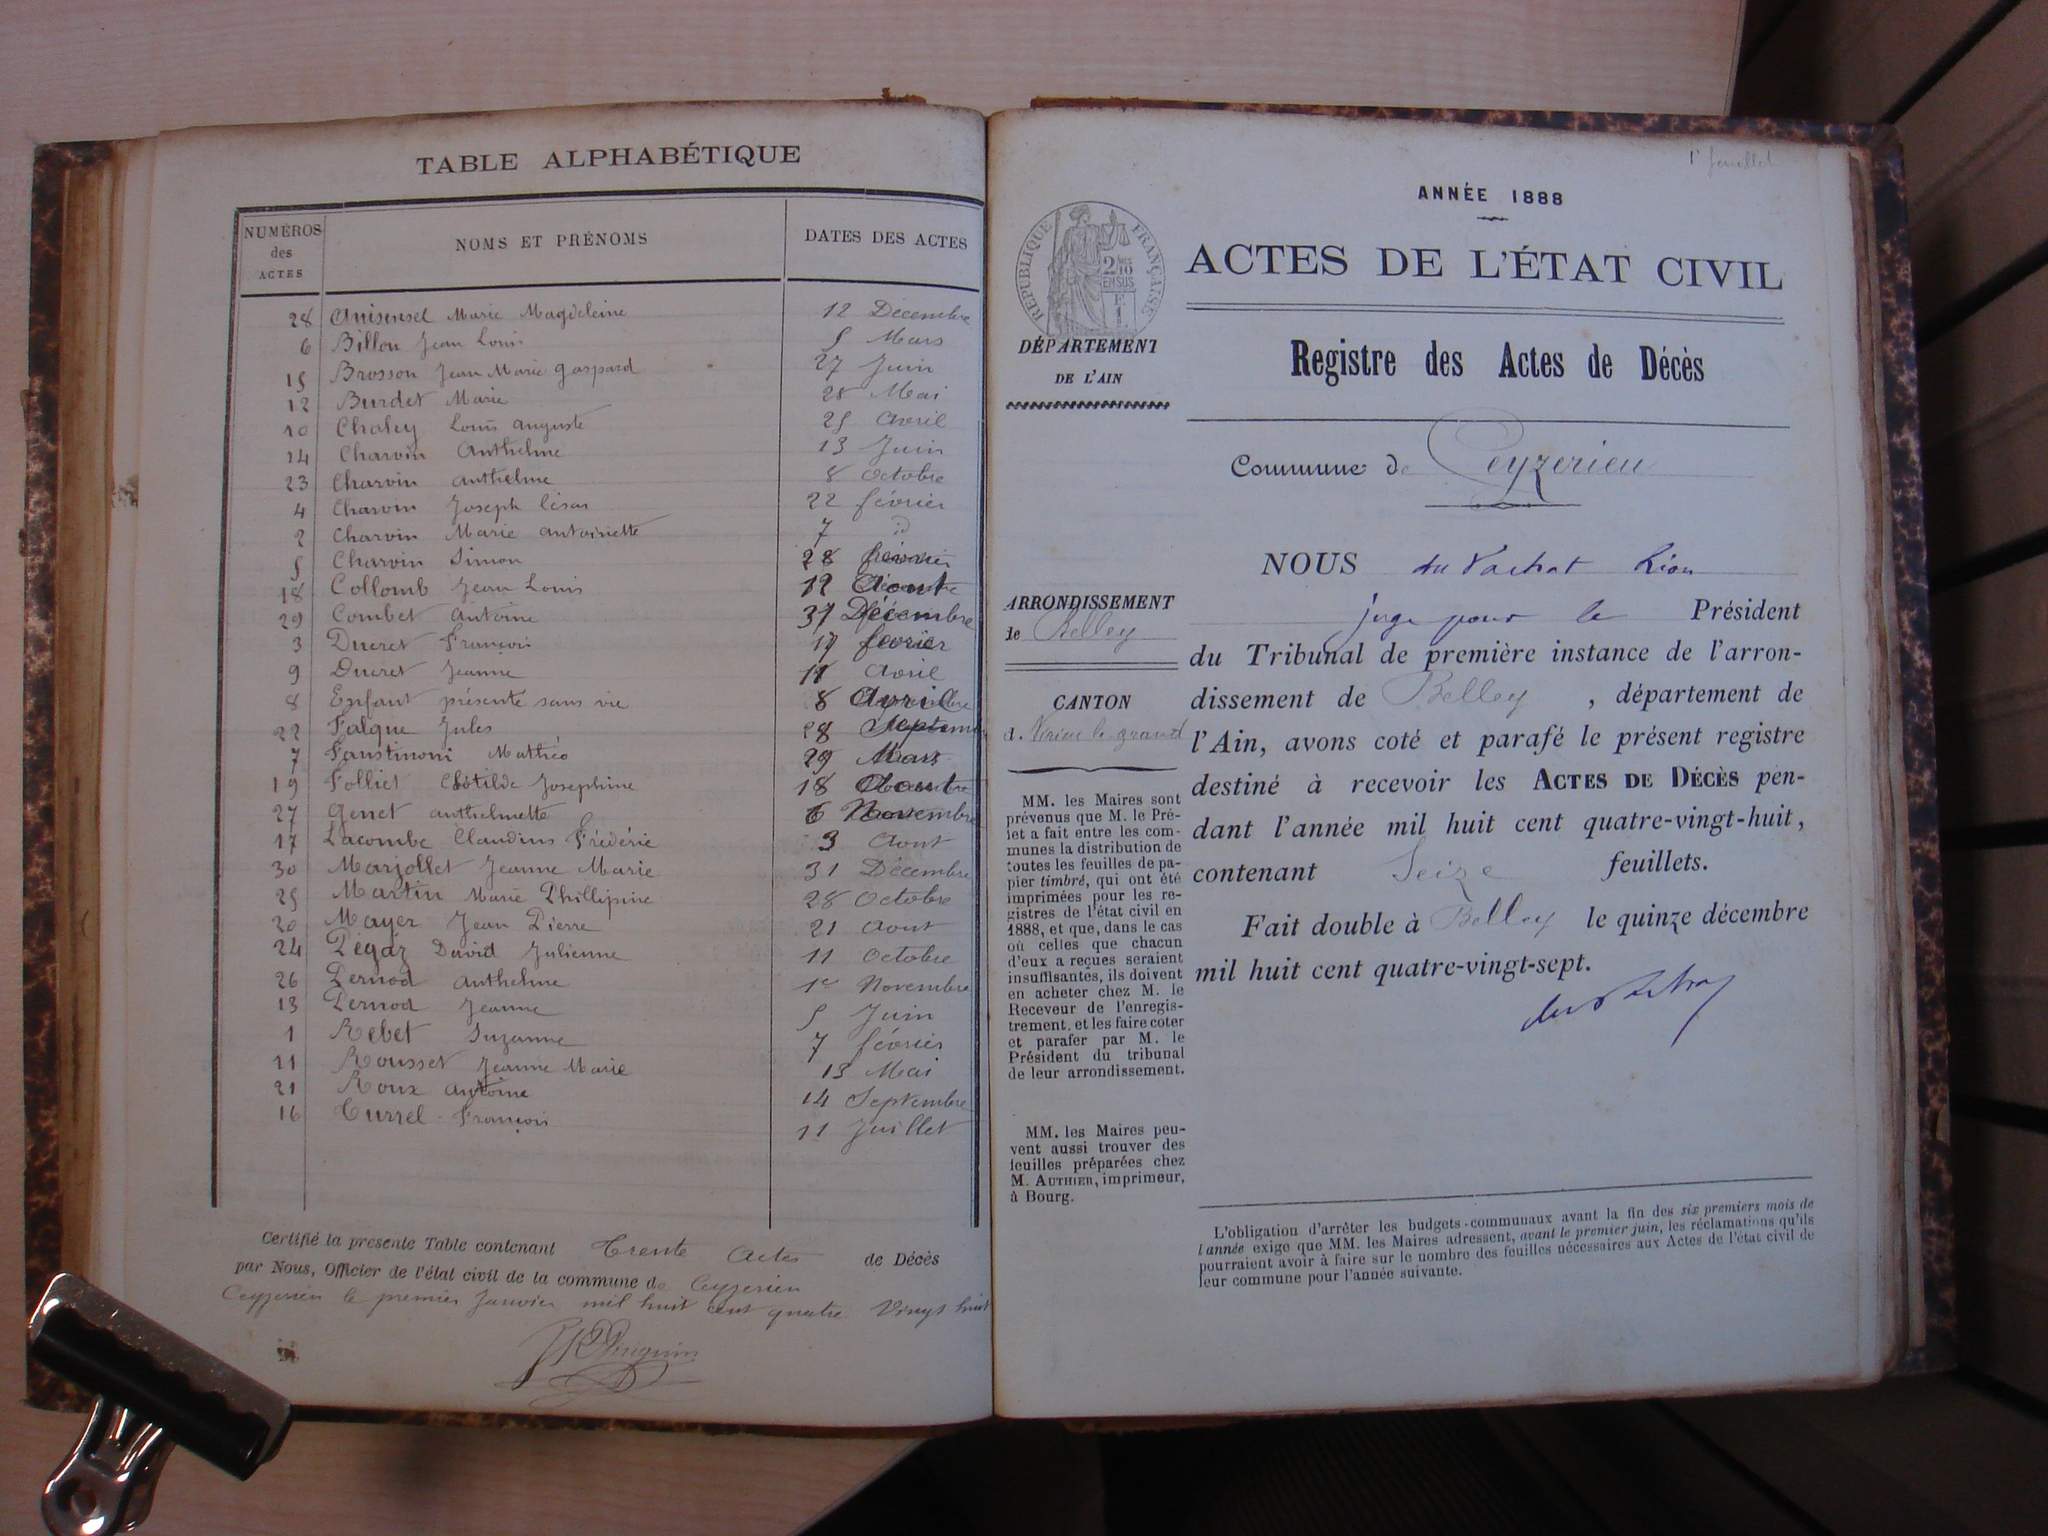 TABLE ALPHABÉTIQUE
NUMÉROS des ACTES NOMS ET PRÉNOMS DATES DES ACTES
28 Marie Magdeleine 12 Décembre
6 Billon Jean Louis 5 Mars
15 Brosson Jean Marie Gaspard 27 Juin
12 Burdet Marie 28 Mai
10 Chaley Louis Auguste 25 Avril
14 Charvin Anthelme 13 Juin
23 Charvin Anthelme 8 Octobre
4 Charvin Joseph César 22 février
2 Charvin Marie Antoinette 7 id
5 Charvin Simon 28 février
18 Collomb Jean Louis 12 Aout
29 Combet Antoine 31 Décembre
3 Ducret François 17 fevrier
9 Ducret Jeanne Avril
8 Enfant présenté sans vie 8 Avril
22 Falque Jules 28
7 Faustinoni Mattéo 29 Mars
19 Folliet Clotilde Josephine 18 Aout
27 Genet Anthelmette 6 Novembre
17 Lacombe Claudius Frédéric 3 Aout
30 Marjollet Jeanne Marie 31 Décembre
25 Martin Marie Phillipine 28 Octobre
20 Mayer Jean Pierre 21 Aout
24 Pégaz David Julienne 11 Octobre
26 Pernod Anthelme 1er Novembre
13 Pernod Jeanne 5 Juin
1 Rebet Suzanne 7 février
11 Rousset Jeanne Marie 13 Mai
21 Roux Antoine 14 Septembre
16 Turrel François 11 Juillet
Certifié la présente Table contenant Trente Actes de Décès
par Nous, Officier de l'état civil de la commune de Ceyzerieu
Ceyzerieu le premier Janvier mil huit cent quatre vingt huit
1r feuillet
ANNÉE 1888
ACTES DE L'ÉTAT CIVIL
RÉPUBLIQUE FRANÇAISE
2/10 EN SUS
DÉPARTEMENT
DE L'AIN
Registre des Actes de Décès
Commune de Ceyzerieu
ARRONDISSEMENT
de Belley
CANTON
d. Virieu le grand
MM. les Maires sont
prévenus que M. le Pré-
fet a fait entre les com-
munes la distribution de
toutes les feuilles de pa-
pier timbré, qui ont été
imprimées pour les re-
gistres de l'état civil en
1888, et que, dans le cas
où celles que chacun
d'eux a reçues seraient
insuffisantes, ils doivent
en acheter chez M. le
Receveur de l'enregis-
trement, et les faire coter
et parafer par M. le
Président du tribunal
de leur arrondissement.
MM. les Maires peu-
vent aussi trouver des
feuilles préparées chez
M. AUTHIER, imprimeur,
à Bourg.
NOUS du Vachat
juge pour le Président
du Tribunal de première instance de l'arron-
dissement de Belley, département de
l'Ain, avons coté et parafé le présent registre
destiné à recevoir les ACTES DE DÉCÈS pen-
dant l'année mil huit cent quatre-vingt-huit,
contenant Seize feuillets.
Fait double à Belley le quinze décembre
mil huit cent quatre-vingt-sept.
L'obligation d'arrêter les budgets communaux avant la fin des six premiers mois de
l'année exige que MM. les Maires adressent, avant le premier juin, les réclamations qu'ils
pourraient avoir à faire sur le nombre des feuilles nécessaires aux Actes de l'état civil de
leur commune pour l'année suivante.